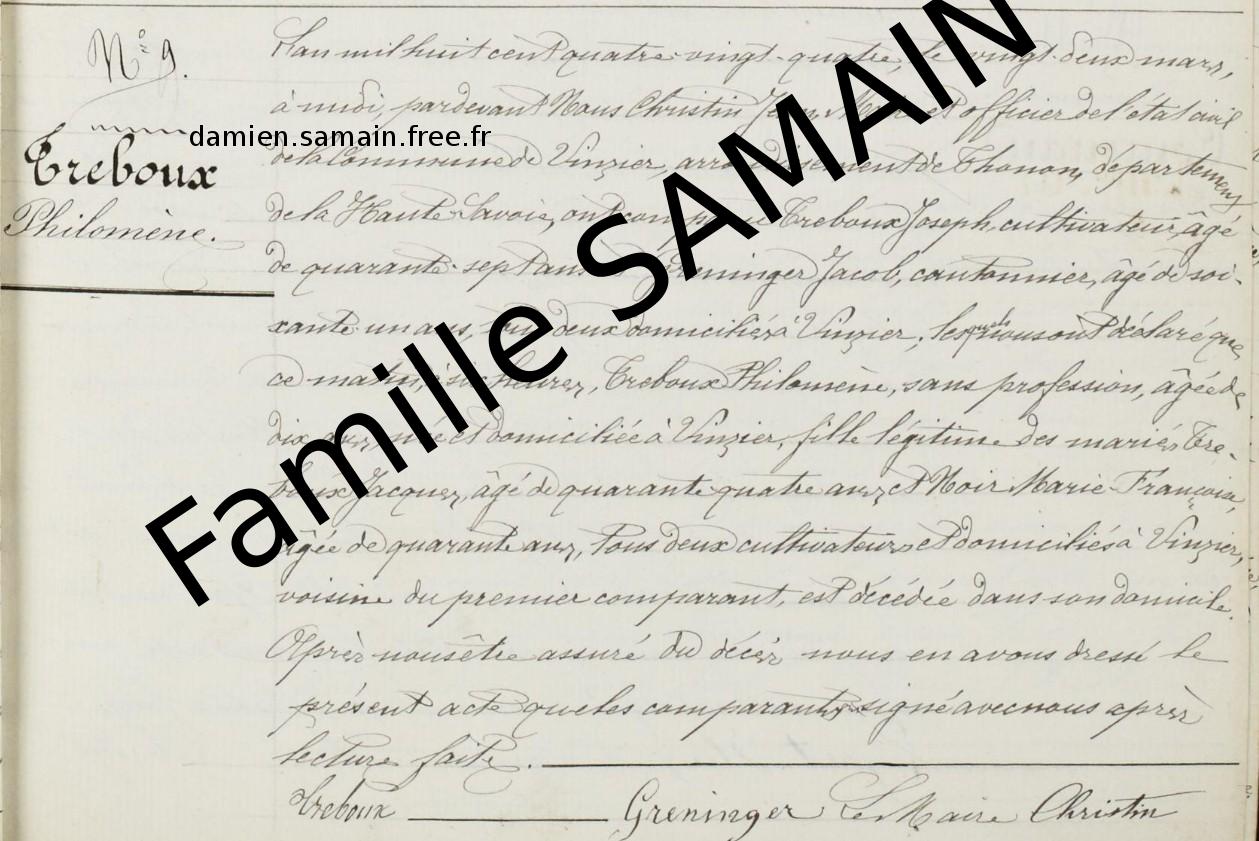 N° 9.
damien.samain.free.fr
Treboux
Philomène.
L'an mil huit cent quatre-vingt-quatre, le vingt-deux mars,
à midi, pardevant Nous Christin Jean, Maire et officier de l'état civil
de la Commune de Vinzier, arrondissement de Thonon, département
de la Haute-Savoie, ont comparu Treboux Joseph, cultivateur, âgé
de quarante-sept ans et Greninger Jacob, cantonnier, âgé de soi-
xante-un ans, tous deux domiciliés à Vinzier, lesquels nous ont déclaré que
ce matin, à six heures, Treboux Philomène, sans profession, âgée de
dix ans, née et domiciliée à Vinzier, fille légitime des mariés Tre-
boux Jacques, âgé de quarante quatre ans, et Noir Marie-Françoise,
âgée de quarante ans, tous deux cultivateurs et domiciliés à Vinzier,
voisine du premier comparant, est décédée dans son domicile.
Après nous être assuré du décès nous en avons dressé le
présent acte que les comparants ont signé avec nous après
lecture faite.
Treboux Greninger Le Maire Christin
Famille SAMAIN